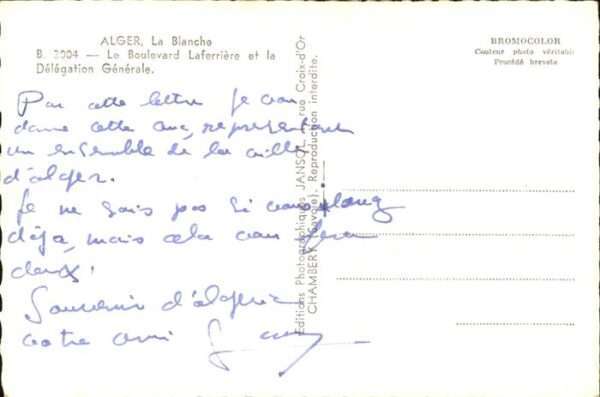 ALGER, La Blanche
B. 2004 — Le Boulevard Laferrière et la
Délégation Générale.
BROMOCOLOR
Couleur photo véritable
Procédé breveté
Editions Photographiques JANSOL, rue Croix-d'Or
CHAMBERY (Savoie). Reproduction interdite.
Par cette lettre je
donne cette vue, représentant
un ensemble de la ville
d'alger.
Je ne sais pas si vous
déjà, mais cela vous fera
deux!
Souvenir d'algérie
votre ami